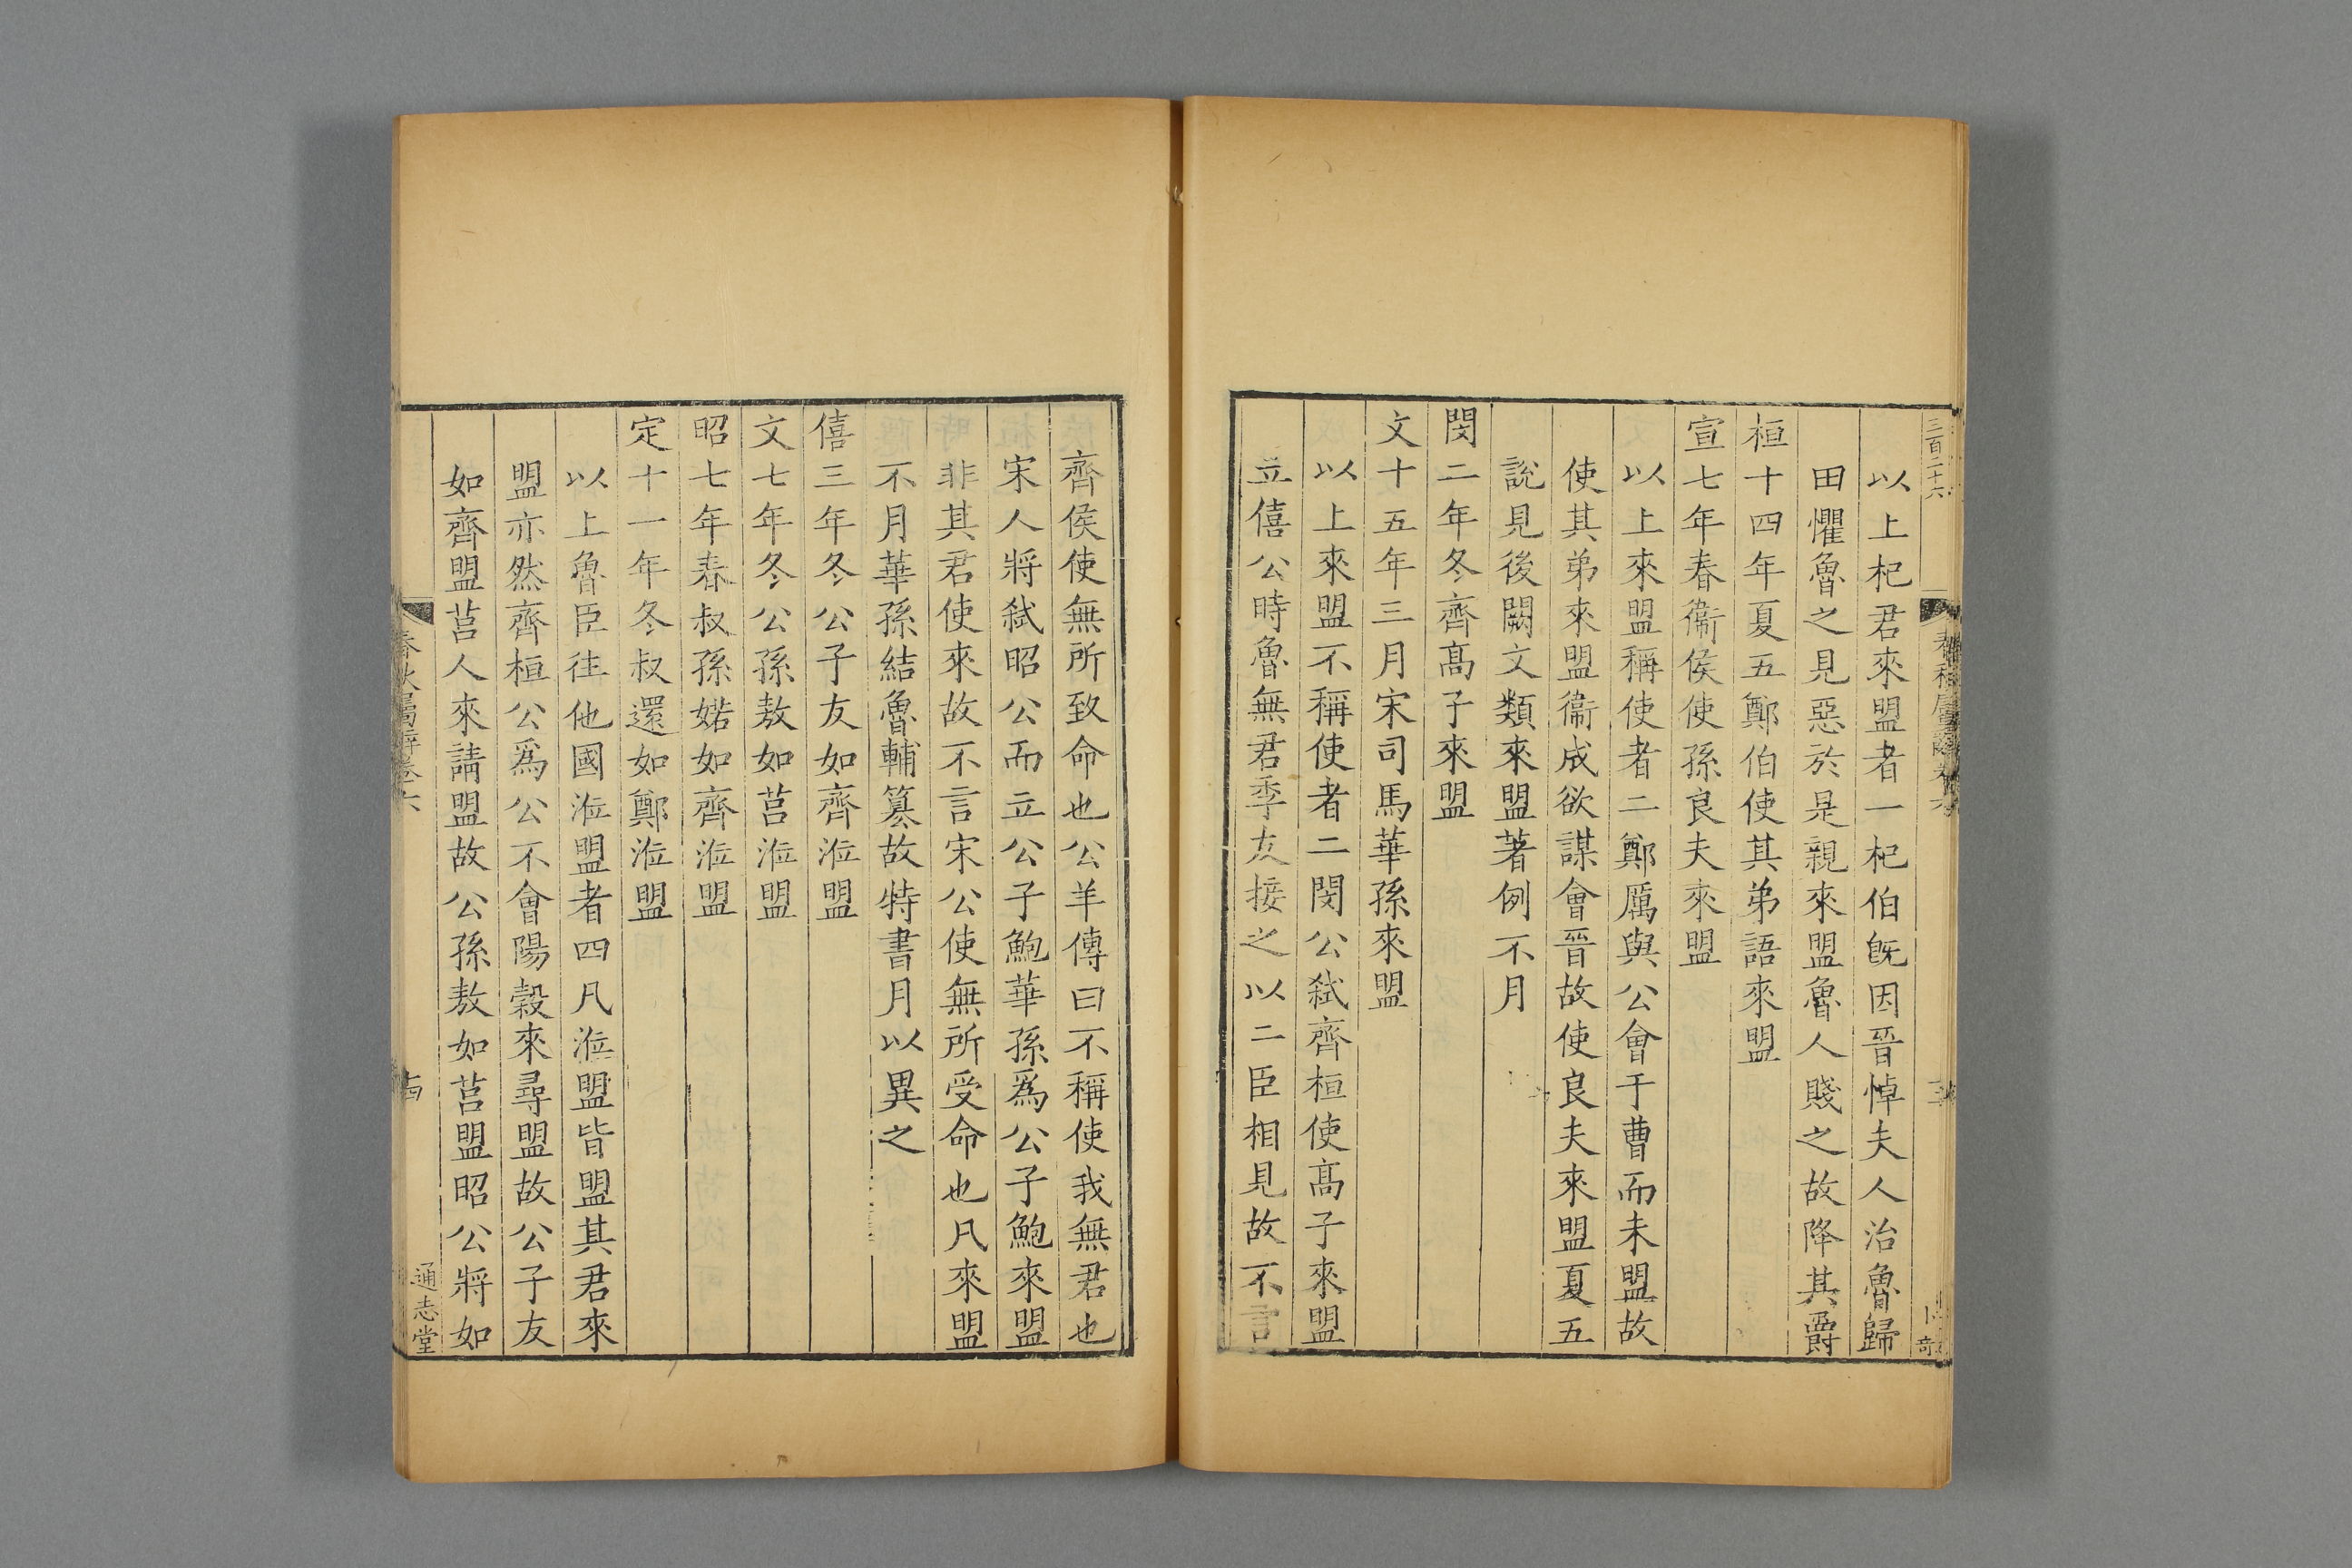 三百二十六
春秋屬辭卷六
以上杞君來盟者一杞伯旣因晉悼夫人治魯歸
田懼魯之見惡於是親來盟魯人賤之故降其爵
桓十四年夏五鄭伯使其弟語來盟
宣七年春衞侯使孫良夫來盟
以上來盟稱使者二鄭厲與公會于曹而未盟故
使其弟來盟衞成欲謀會晉故使良夫來盟夏五
說見後闕文類來盟著例不月
閔二年冬齊髙子來盟
文十五年三月宋司馬華孫來盟
以上來盟不稱使者二閔公弑齊桓使髙子來盟
立僖公時魯無君季友接之以二臣相見故不言
齊侯使無所致命也公羊傳曰不稱使我無君也
宋人將弑昭公而立公子鮑華孫爲公子鮑來盟
非其君使來故不言宋公使無所受命也凡來盟
不月華孫結魯輔簒故特書月以異之
僖三年冬公子友如齊涖盟
文七年冬公孫敖如莒涖盟
昭七年春叔孫婼如齊涖盟
定十一年冬叔還如鄭涖盟
以上魯臣往他國涖盟者四凡涖盟皆盟其君來
盟亦然齊桓公爲公不會陽穀來尋盟故公子友
如齊盟莒人來請盟故公孫敖如莒盟昭公將如
春秋屬辭卷六
十四
通志堂